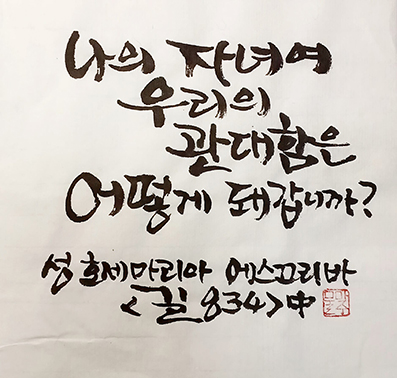 나의 자녀여
우리의
관대함은
어떻게 돼갑니까?
성 호세마리아 에스끄리바
<길 834> 中